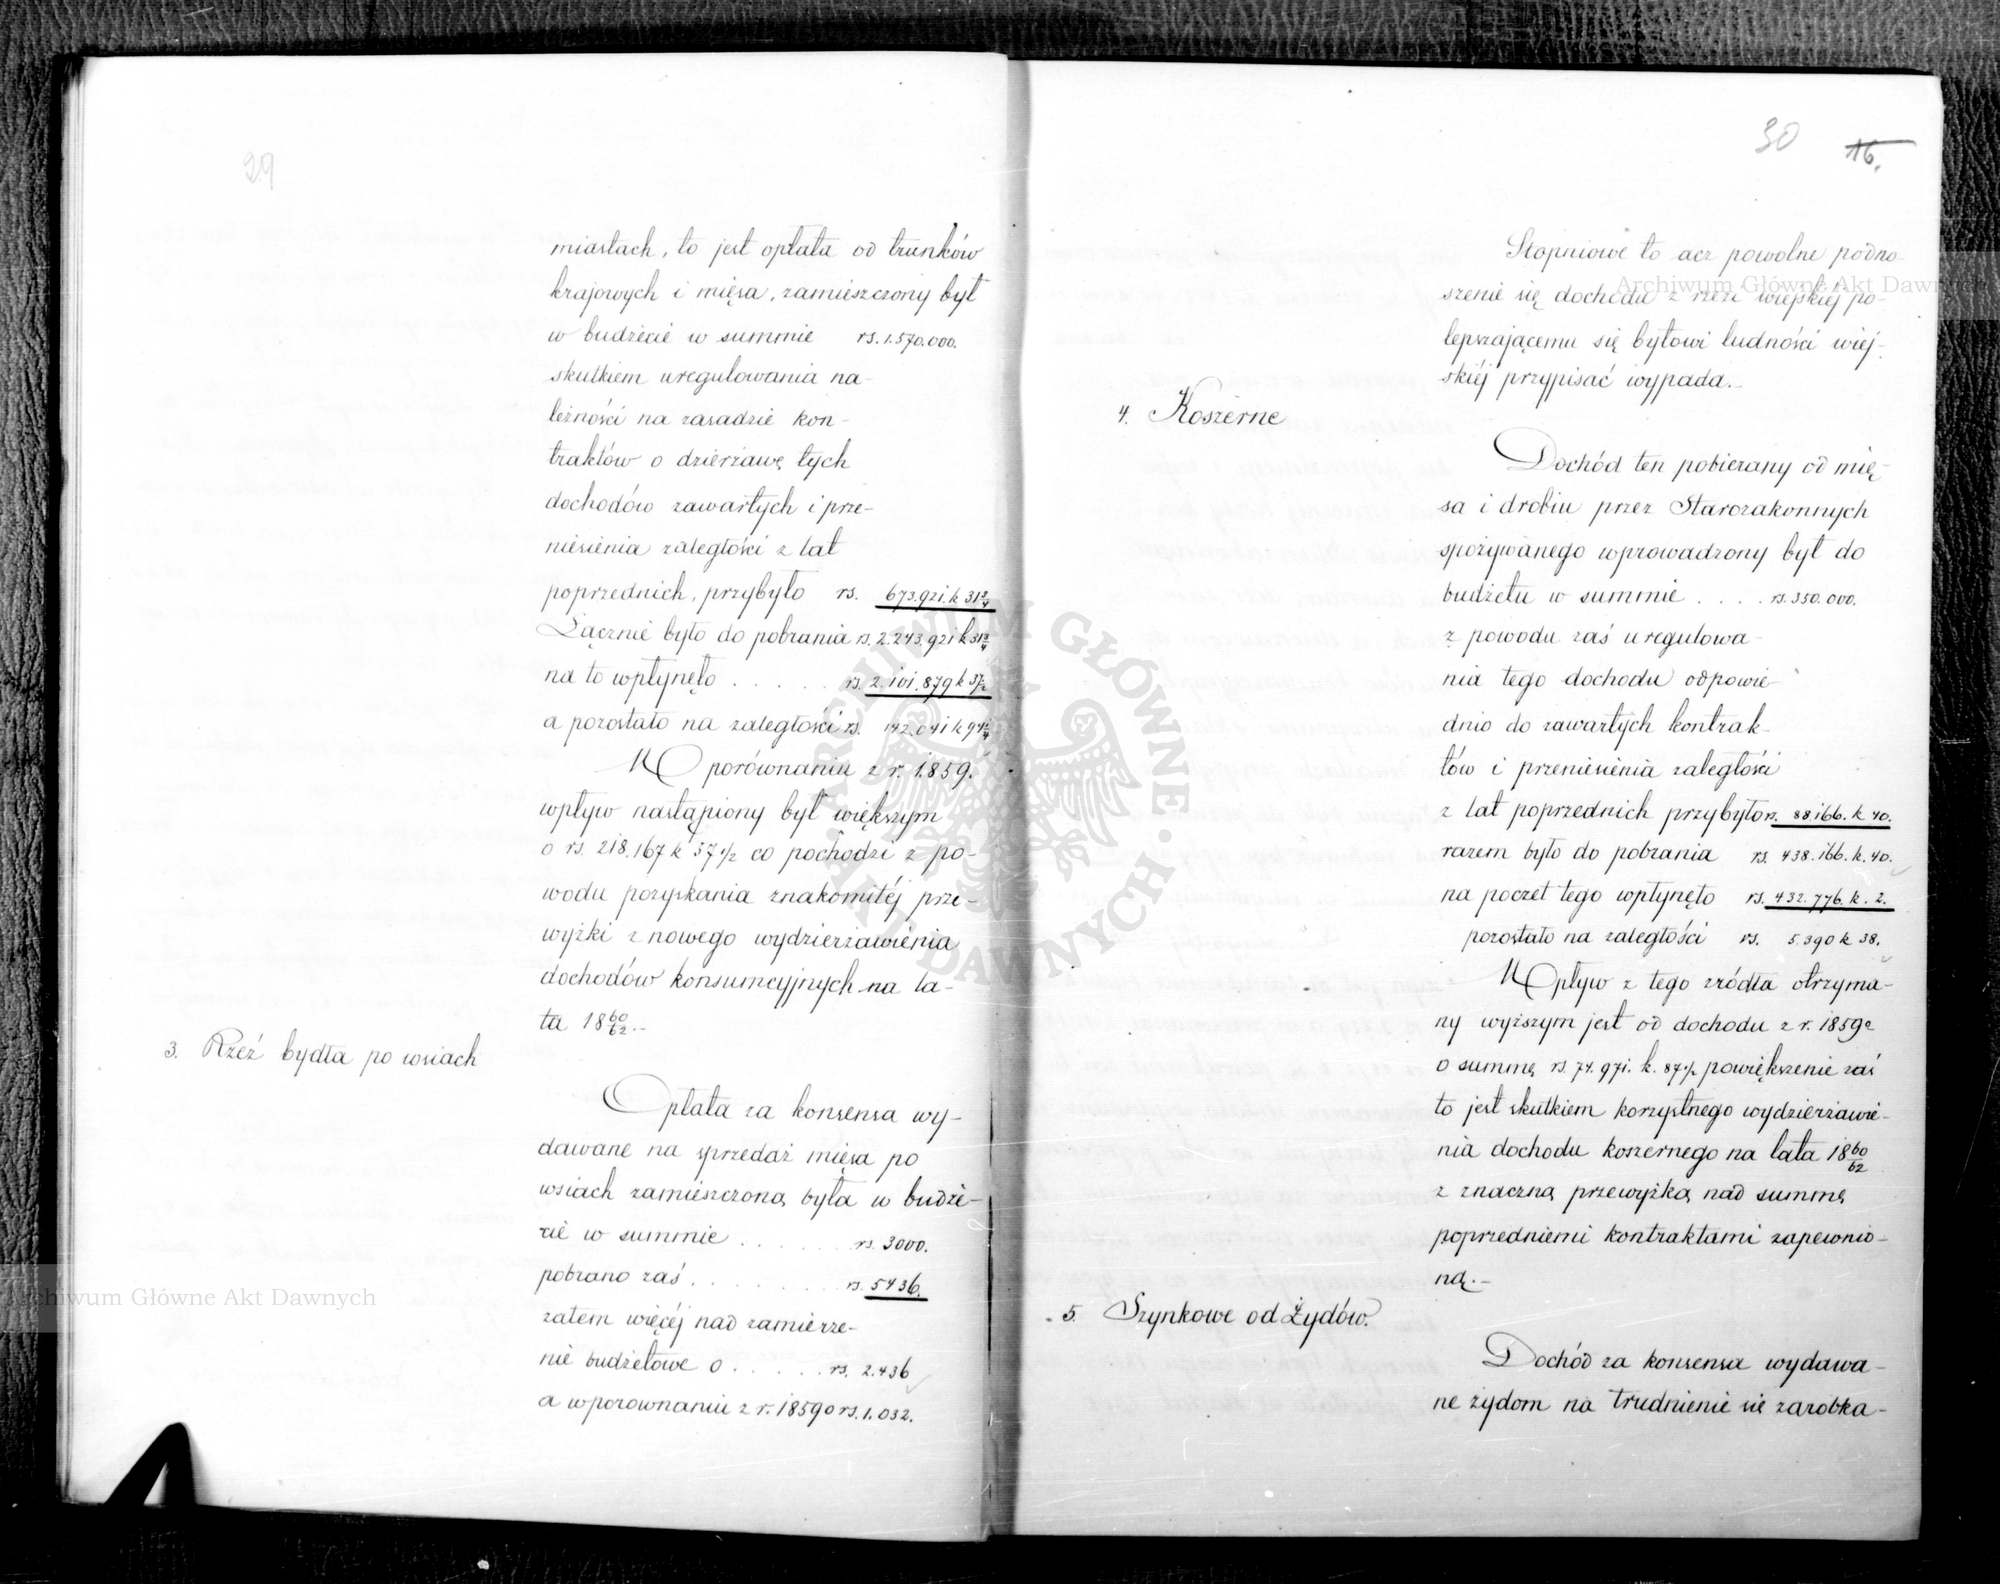 29
miastach, to jest opłata od trunków
krajowych i mięsa, zamieszczony był
w budżecie w summie rs. 1.570.000.
skutkiem uregulowania na-
leżności na zasadzie kon-
traktów o dzierżawę tych
dochodów zawartych i prze-
niesienia zaległości z lat
poprzednich, przybyło rs. 673.921. k 31 3/4
Łącznie było do pobrania rs. 2.243.921 k 31 3/4
na to wpłynęło . . . . . rs. 2.101.879 k 37 1/2
a pozostało na zaległości rs. 142.041 k 94 1/4
W porównaniu z r. 1859.
wpływ nastąpiony był większym
o rs. 218.167 k 57 1/2 co pochodzi z po-
wodu pozyskania znakomitéj prze-
wyżki z nowego wydzierżawienia
dochodów konsumcyjnych na la-
ta 18 60/62.-
3. Rzeź bydła po wsiach
Opłata za konsensa wy-
dawane na sprzedaż mięsa po
wsiach zamieszczoną była w budże-
cie w summie . . . . . . rs. 3000.
pobrano zaś . . . . . . . rs. 5436.
zatem więcéj nad zamierze-
nie budżetowe o . . . . . rs. 2.436
a w porownaniu z r. 1859 o rs. 1.032.
30 16.
Stopniowe to acz powolne podno-
szenie się dochodu z rzezi wiejskiéj po-
lepszającemu się bytowi ludności wiej-
skiéj przypisać wypada.-
4. Koszerne
Dochód ten pobierany od mię-
sa i drobiu przez Starozakonnych
spożywanego wprowadzony był do
budżetu w summie . . . . rs. 350.000.
z powodu zaś uregulowa-
nia tego dochodu odpowie-
dnio do zawartych kontrak-
tów i przeniesienia zaległości
z lat poprzednich przybyło rs. 88.166. k 40.
razem było do pobrania rs. 438.166. k. 40.
na poczet tego wpłynęło rs. 432.776. k. 2.
pozostało na zaległości rs. 5.390 k 38.
Wpływ z tego źródła otrzyma-
ny wyższym jest od dochodu z r. 1859e
o summę rs. 74.971. k. 87 1/2 powiększenie zaś
to jest skutkiem korzystnego wydzierżawie-
nia dochodu koszernego na lata 18 60/62
z znaczną przewyżką nad summę
poprzedniemi kontraktami zapewnio-
ną.-
5. Szynkowe od Żydów.
Dochód za konsensa wydawa-
ne żydom na trudnienie się zarobka-
Archiwum Główne Akt Dawnych
Archiwum Główne Akt Dawnych
ARCHIWUM GŁÓWNE · AKT DAWNYCH ·